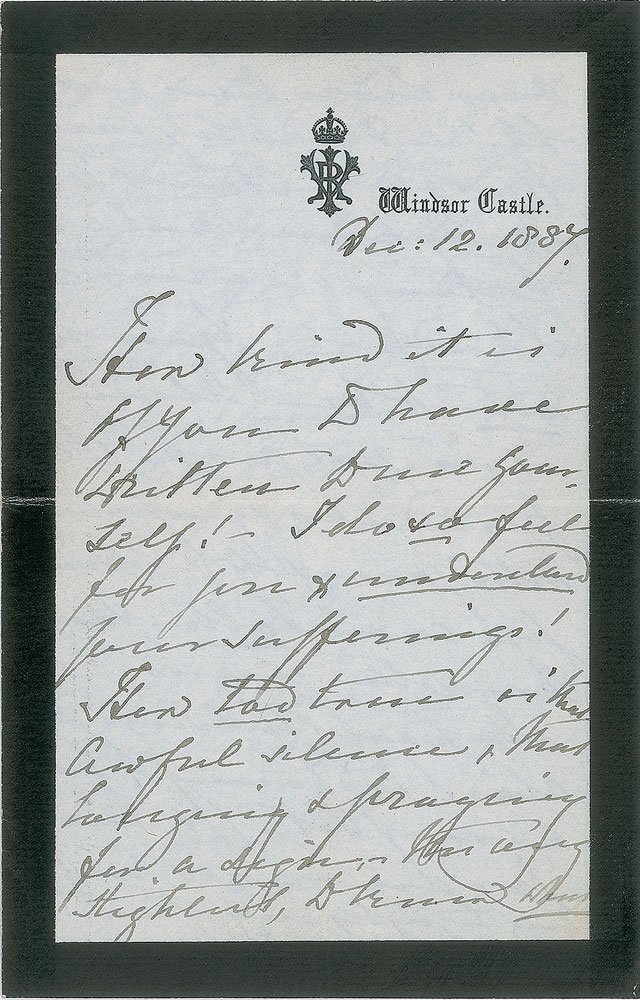 Windsor Castle.
Dec: 12. 1887.
How kind it is
of you to have
written to me your-
self! – I do so feel
for you & understand
your sufferings!
How too true is that
awful silence, & that
longing & praying
for a sign, –
to know